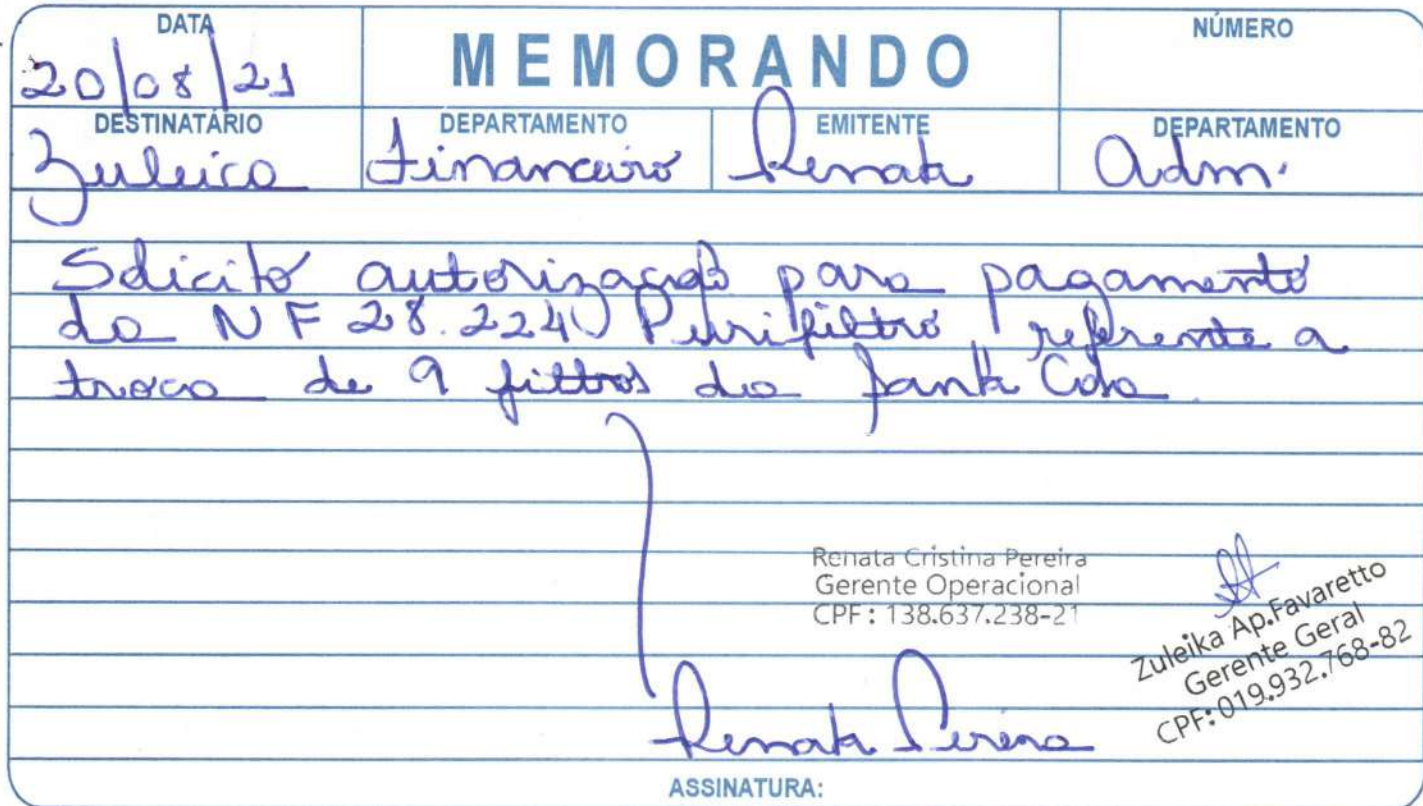 DATA
MEMORANDO
NÚMERO
20/08/21
DESTINATÁRIO
DEPARTAMENTO
EMITENTE
DEPARTAMENTO
Zuleica
Financeiro
Renata
Adm.
Solicito autorização para pagamento
da NF 28.224 Purifiltro referente a
troca de 9 filtros da
Renata Cristina Pereira
Gerente Operacional
CPF: 138.637.238-21
Zuleika Ap.Favaretto
Gerente Geral
CPF: 019.932.768-82
Renata Pereira
ASSINATURA: